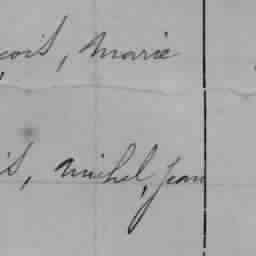 çois, Marie
is, Michel, Jean